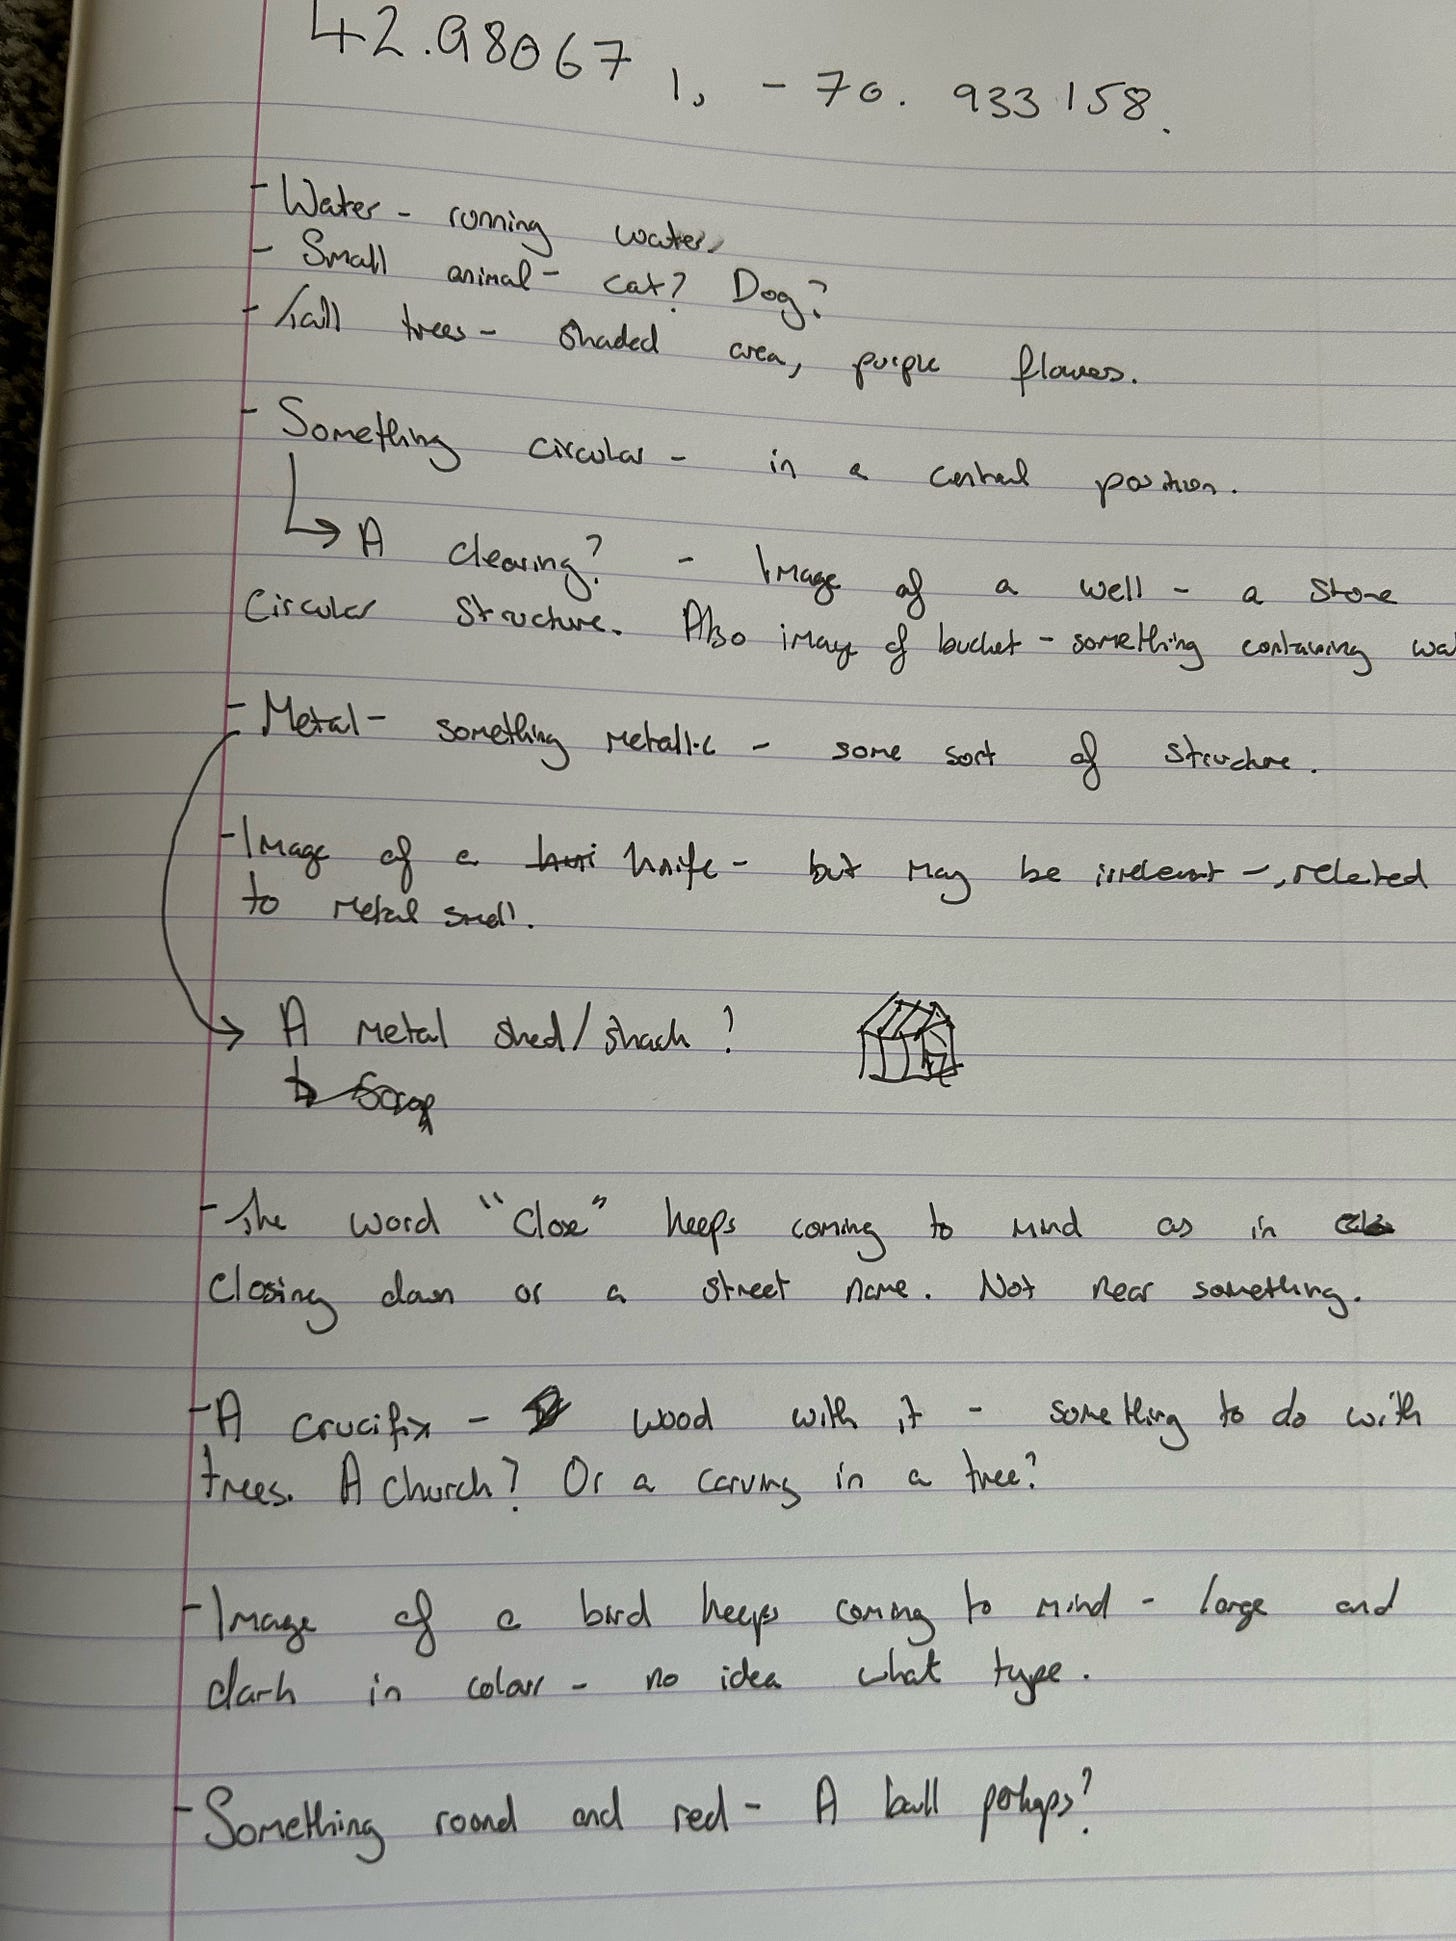 42.980671, -70.933158.
- Water - running water.
- Small animal - cat? Dog?
- Tall trees - shaded area, purple flowers.
- Something circular - in a central position.
→ A clearing? - Image of a well - a stone
circular structure. Also image of bucket - something containing wa
- Metal - something metallic - some sort of structure.
- Image of a knife - but may be irrelevant -, related
to metal smell.
→ A metal shed/shack?
Scrap
- The word "Close" keeps coming to mind as in
closing down or a street name. Not near something.
- A crucifix - wood with it - something to do with
trees. A church? Or a carving in a tree?
- Image of a bird keeps coming to mind - large and
dark in colour - no idea what type.
- Something round and red - A ball perhaps?